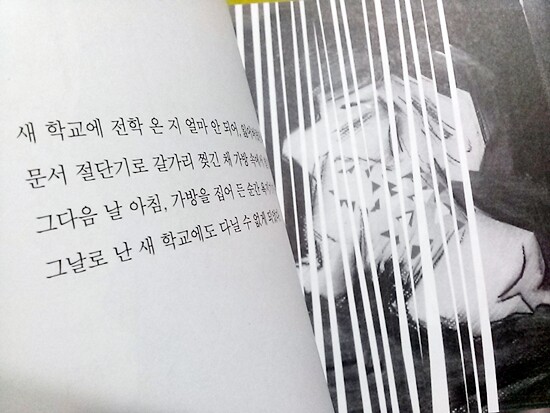 새 학교에 전학 온 지 얼마 안 되어,
문서 절단기로 갈가리 찢긴 채 가방 속에서
그다음 날 아침, 가방을 집어 든 순간
그날로 난 새 학교에도 다닐 수 없게